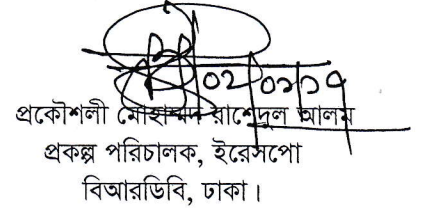 ০২/০৯/১৭
প্রকৌশলী মোহাম্মদ রাশেদুল আলম
প্রকল্প পরিচালক, ইরেসপো
বিআরডিবি, ঢাকা।